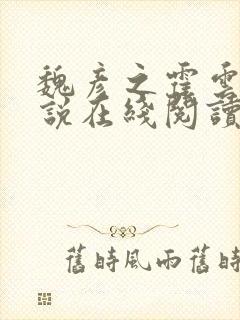 魏彥之霍雲
說在綫閱讀
舊時風雨舊時